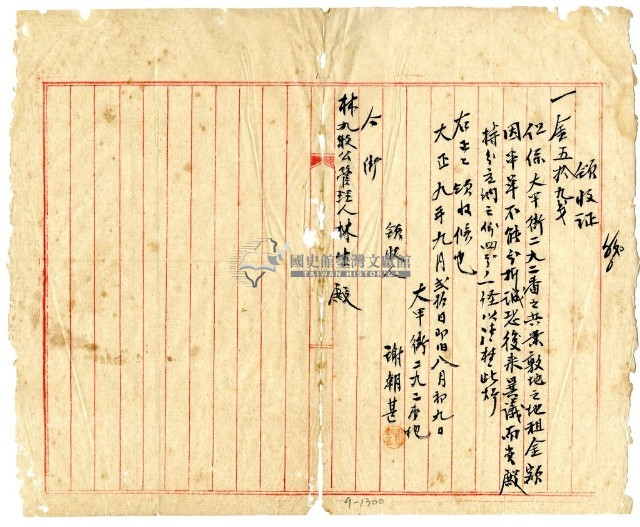 領收証
一金五拾九戔
但係大甲街二九二番之共業敷地之地租金額
因本年不能分析誠恐後來異議而貴殿
持分立納之份四分一經以清楚此炤
右正ニ領收候也
大正九年九月貳拾日即旧八月初九日
大甲街二九二番地
領收人 謝朝甚
仝街
林九牧公管理人林 殿
國史館臺灣文獻館
TAIWAN HISTORICA
9-1300